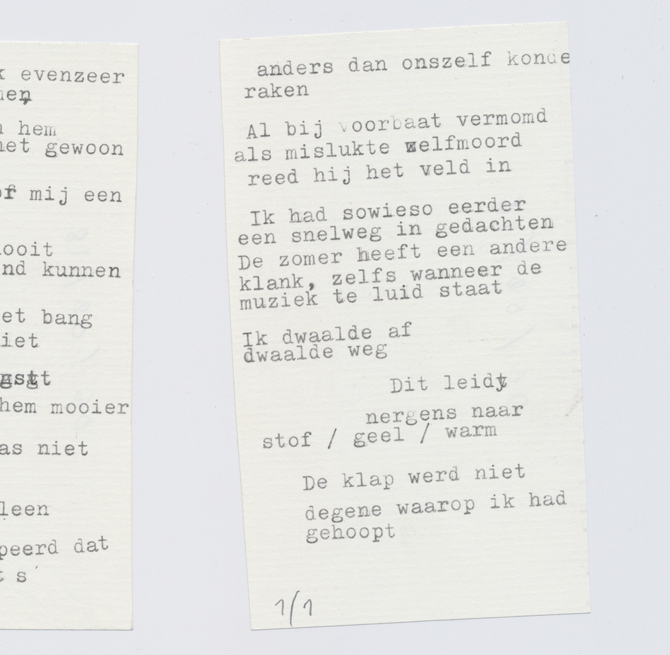 evenzeer
hem
het gewoon
mij een
nooit
kunnen
bang
hem mooier
niet
dat
s
anders dan onszelf konde
raken
Al bij voorbaat vermomd
als mislukte zelfmoord
reed hij het veld in
Ik had sowieso eerder
een snelweg in gedachten
De zomer heeft een andere
klank, zelfs wanneer de
muziek te luid staat
Ik dwaalde af
dwaalde weg
Dit leidt
nergens naar
stof / geel / warm
De klap werd niet
degene waarop ik had
gehoopt
1/1